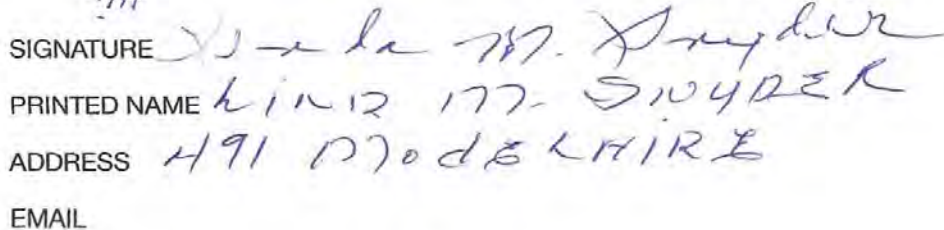 SIGNATURE Linda M. Snyder
PRINTED NAME LINDA M. SNYDER
ADDRESS 491
EMAIL